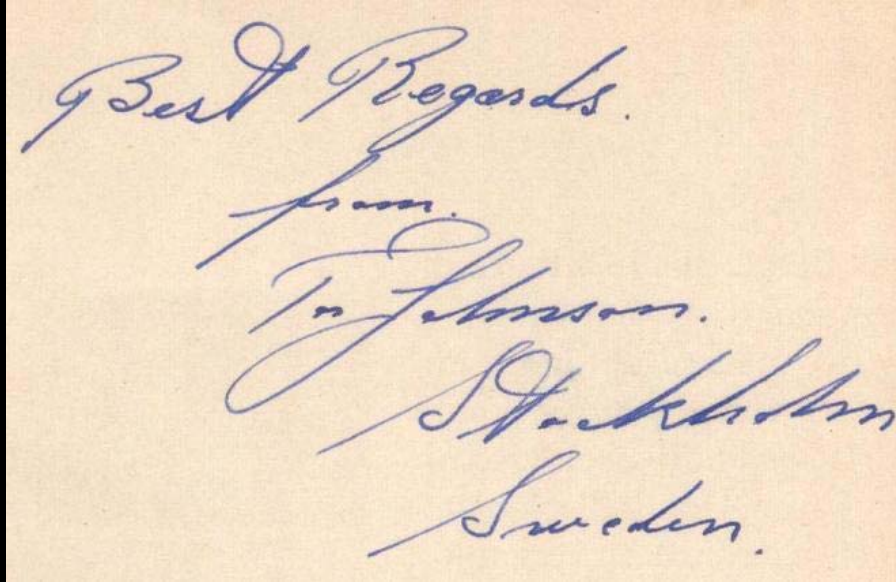 Best Regards.
from.
Tor Johnson.
Stockholm
Sweden.